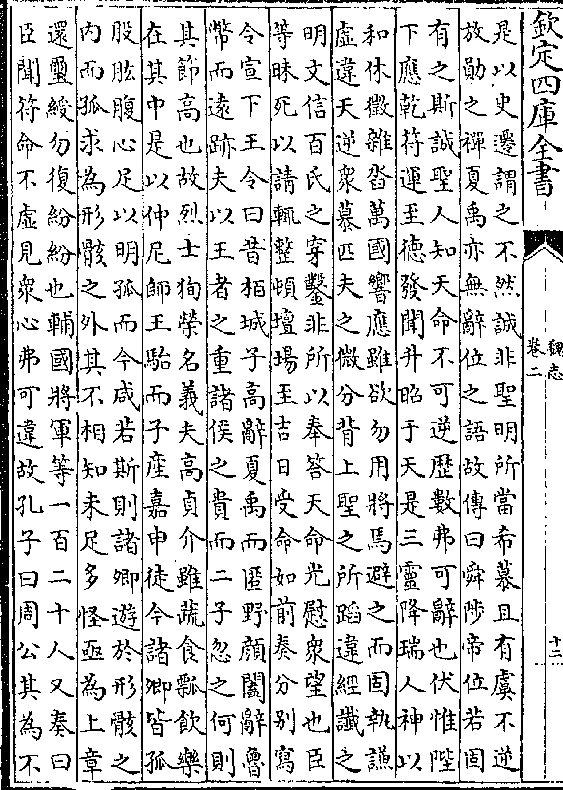 欽定四庫全書
魏志
卷二
十二
是以史遷謂之不然誠非聖明所當希慕且有虞不逆
放勛之禪夏禹亦無辭位之語故傳曰舜陟帝位若固
有之斯誠聖人知天命不可逆歴數弗可辭也伏惟陛
下應乾符運至德發聞升昭于天是三靈降瑞人神以
和休徵雜沓萬國響應雖欲勿用將焉避之而固執謙
虛違天逆衆慕匹夫之微分背上聖之所蹈違經讖之
明文信百氏之穿鑿非所以奉答天命光慰衆望也臣
等昧死以請輒整頓壇場至吉日受命如前奏分别寫
令宣下王令曰昔栢城子高辭夏禹而匿野顔闔辭魯
幣而遠跡夫以王者之重諸侯之貴而二子忽之何則
其節高也故烈士狥榮名義夫高貞介雖蔬食瓢飲樂
在其中是以仲尼師王駘而子產嘉申徒今諸卿皆孤
股肱腹心足以明孤而今咸若斯則諸卿遊於形骸之
内而孤求為形骸之外其不相知未足多怪亟為上章
還璽綬勿復紛紛也輔國將軍等一百二十人又奏曰
臣聞符命不虛見衆心弗可違故孔子曰周公其為不